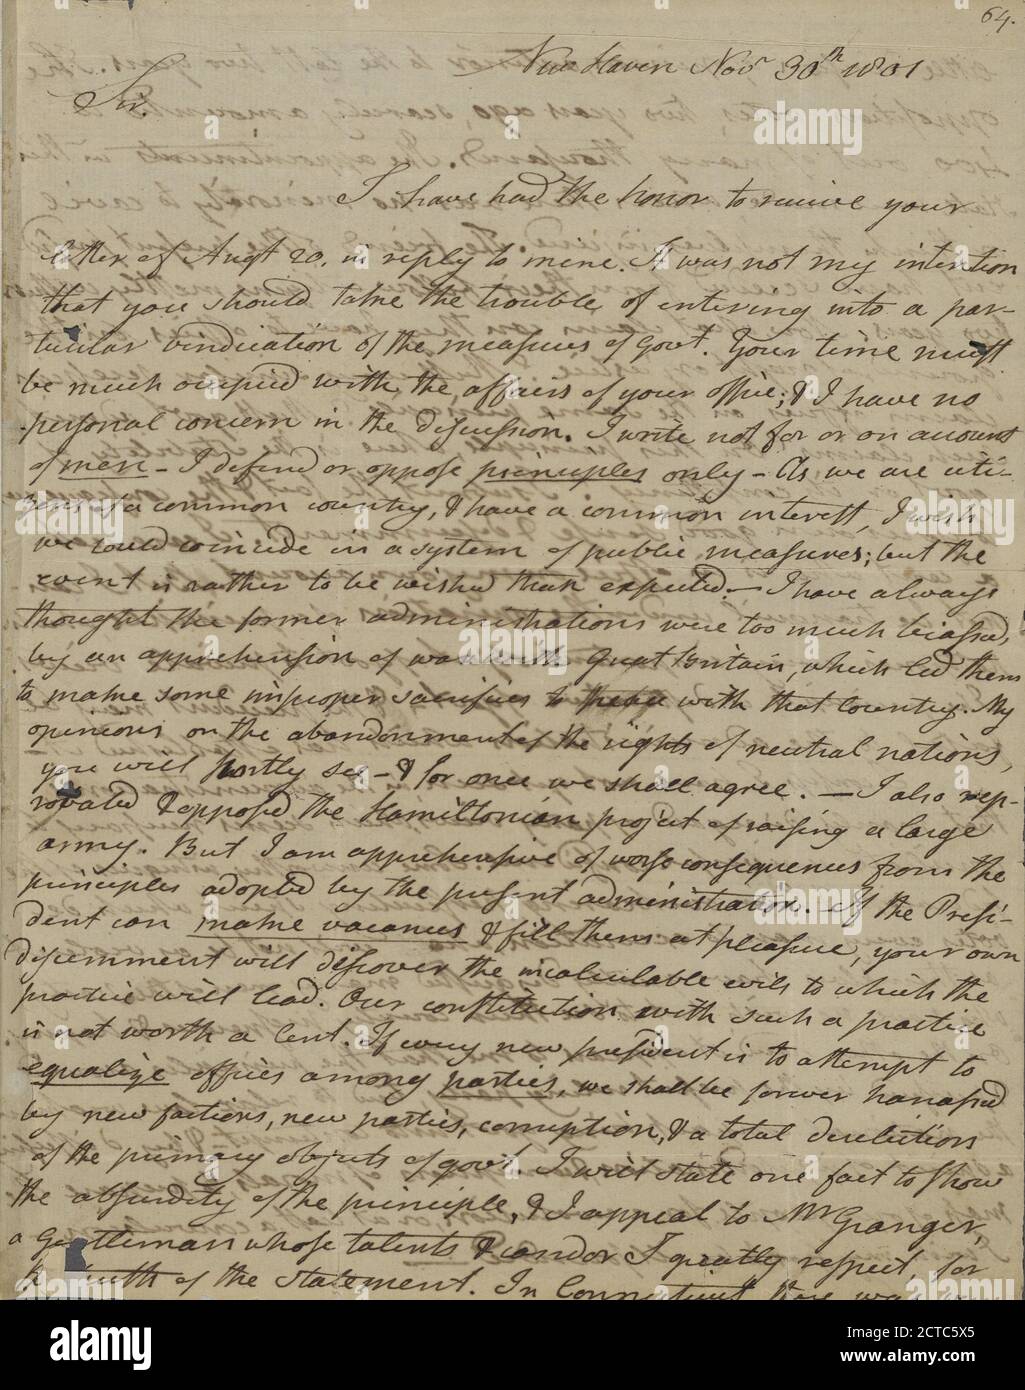 64.
New Haven Novr 30th 1801
Sir.
I have had the honor to receive your
letter of Augt 20. in reply to mine. It was not my intention
that you should take the trouble of entering into a par-
ticular vindication of the measures of Govt. Your time must
be much occupied with the affairs of your office; & I have no
personal concern in the discussion. I write not for or on account
of men - I defend or oppose principles only - As we are citi-
zens of a common country, & have a common interest, I wish
we could coincide in a system of public measures; but the
event is rather to be wished than expected. - I have always
thought the former administrations were too much biassed,
by an apprehension of war with Great Britain, which led them
to make some improper sacrifices to peace with that Country. My
opinions on the abandonment of the rights of neutral nations,
you will shortly see - & for once we shall agree. - I also rep-
robated & opposed the Hamiltonian project of raising a large
army. But I am apprehensive of worse consequences from the
principles adopted by the present administration. If the Presi-
dent can make vacancies & fill them at pleasure, your own
discernment will discover the incalculable evils to which the
practice will lead. Our constitution with such a practice
is not worth a Cent. If every new president is to attempt to
equalize offices among parties, we shall be forever harrassed
by new factions, new parties, corruption, & a total dereliction
of the primary objects of govt. I will state one fact to show
the absurdity of the principle, & I appeal to Mr Granger,
a Gentleman whose talents & candor I greatly respect for
the truth of the statement. In Connecticut there was
alamy
Image ID: 2CTC5X5
www.alamy.com